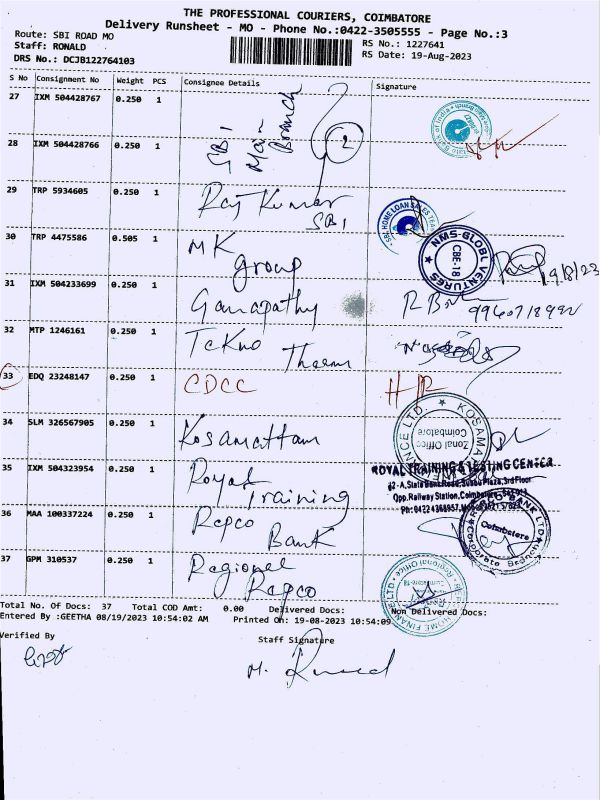 THE PROFESSIONAL COURIERS, COIMBATORE
Delivery Runsheet - MO - Phone No.:0422-3505555 - Page No.:3
Route: SBI ROAD MO
RS No.: 1227641
Staff: RONALD
RS Date: 19-Aug-2023
DRS No.: DCJB122764103
S No Consignment No Weight PCS Consignee Details Signature
27 IXM 504428767 0.250 1 SBI Main Branch
28 IXM 504428766 0.250 1 2
29 TRP 5934605 0.250 1 Raj Kumar
SBI
SBI HOME LOAN SALES TEAM
30 TRP 4475586 0.505 1 MK
group
NMS-GLOBL VENTURES
CBE-18
19/8/23
31 IXM 504233699 0.250 1 Ganapathy
32 MTP 1246161 0.250 1 Tekno
Therm
33 EDQ 23248147 0.250 1 CDCC
34 SLM 326567905 0.250 1 Kosamattam
Zonal Office
Coimbatore
35 IXM 504323954 0.250 1 Royal
Training
ROYAL TRAINING & TESTING CENTER
Opp.Railway Station,
36 MAA 100337224 0.250 1 Repco
Bank
Coimbatore
37 GPM 310537 0.250 1 Regional
Repco
Total No. Of Docs: 37 Total COD Amt: 0.00 Delivered Docs: Non Delivered Docs:
Entered By :GEETHA 08/19/2023 10:54:02 AM Printed On: 19-08-2023 10:54:09
Verified By
Staff Signature